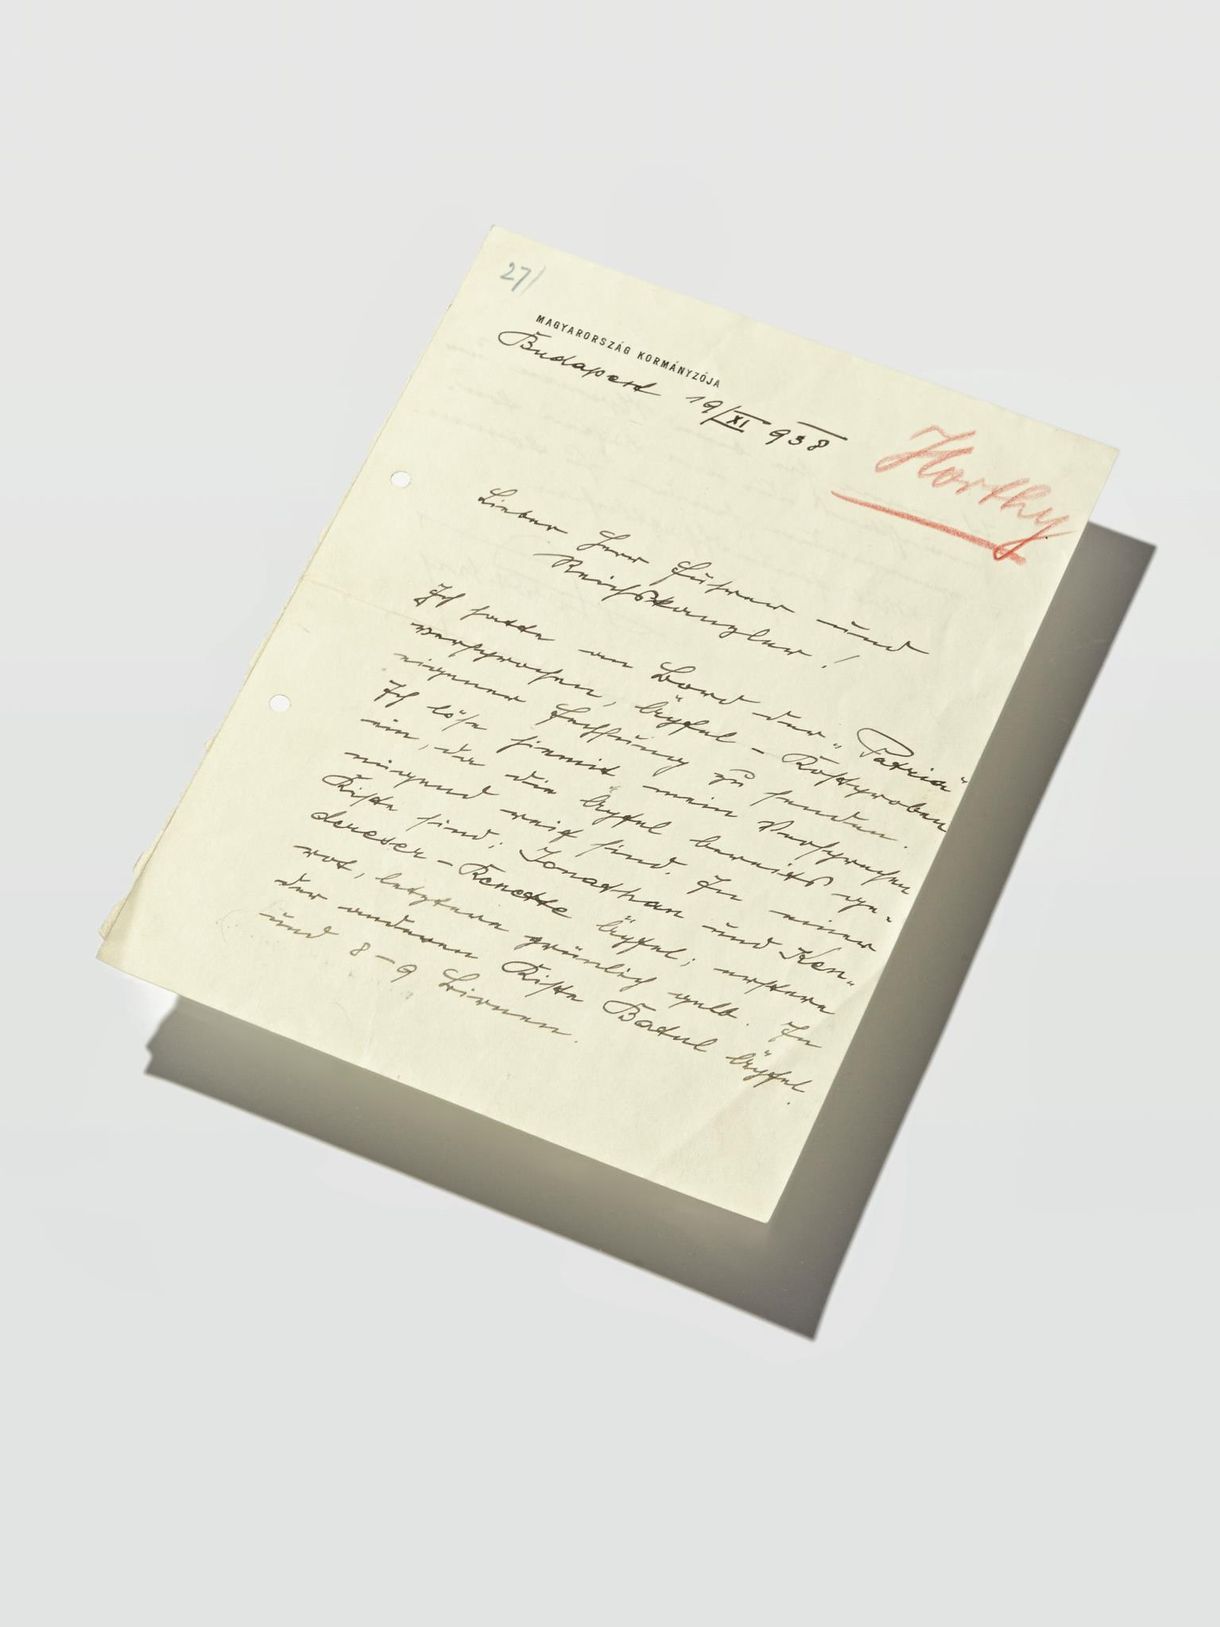 27/
MAGYARORSZÁG KORMÁNYZÓJA
Budapest 19/XI 938
Horthy
Lieber Herr Führer und
Reichskanzler!
Ich hatte an Bord der „Patria"
versprochen, Äpfel-Kostproben
eigener Fechsung zu senden.
Ich löse hiemit mein Versprechen
ein, da die Äpfel bereits ge-
nügend reif sind. In einer
Kiste sind: Jonathan und Ken-
dereser-Renette Äpfel; erstere
rot, letztere grünlich gelb. In
der anderen Kiste Batul Äpfel.
und 8-9 Birnen.